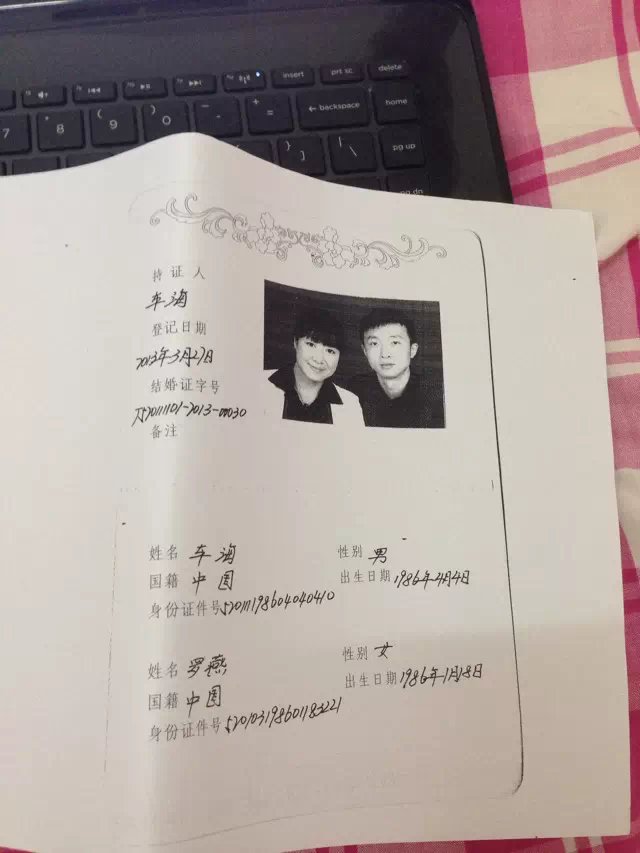 insert
prt sc
delete
7
* 8
( 9
) 0
_ -
+ =
← backspace
home
} ]
| \
pg up
pg dn
持证人
车海
登记日期
2013年3月27日
结婚证字号
备注
姓名 车海 性别 男
国籍 中国 出生日期 1986年4月4日
身份证件号 520111198604040410
姓名 罗燕 性别 女
国籍 中国 出生日期 1986年1月18日
身份证件号